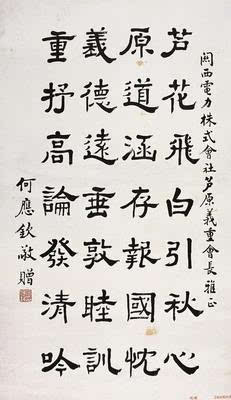 関西電力株式會社芦原義重會長雅正
芦花飛白引秋心
原道涵存報國忱
義德遠垂敦睦訓
重抒高論發清吟
何應欽敬贈